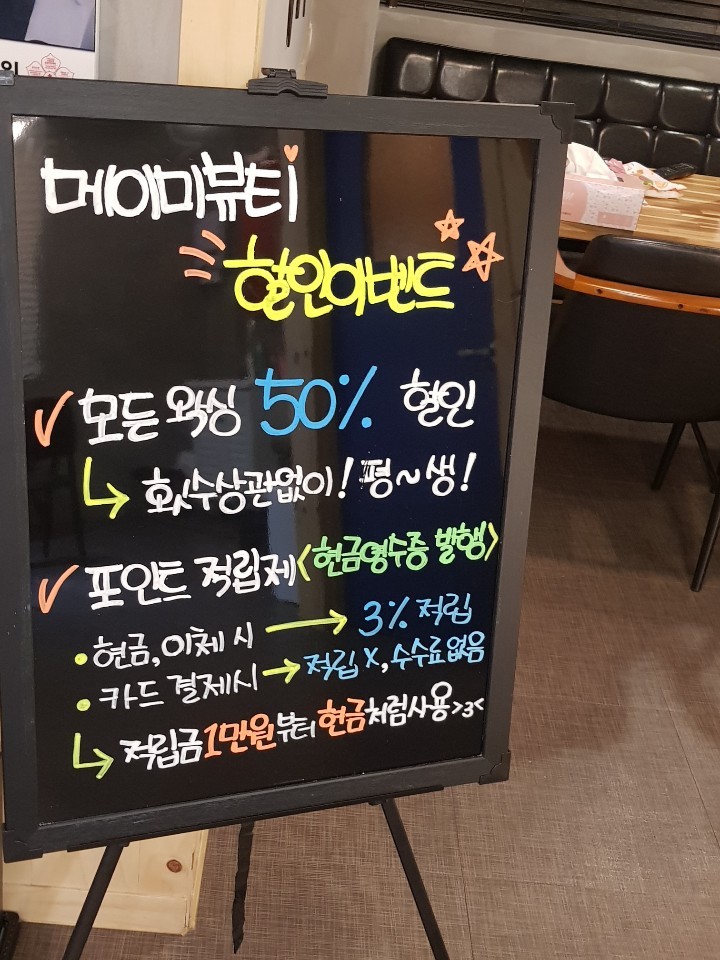 원
메이미뷰티
할인이벤트
✓ 모든 왁싱 50% 할인
↳ 횟수상관없이! 평~생!
✓ 포인트 적립제 <현금영수증 발행>
• 현금, 이체 시 → 3% 적립
• 카드 결제시 → 적립 X, 수수료 없음
↳ 적립금 1만원부터 현금처럼사용 >3<